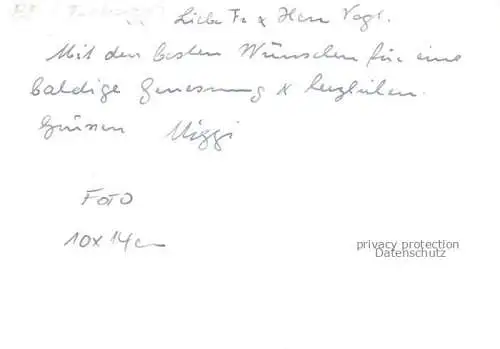 Liebe Fr x Herr Vogt.
Mit den besten Wünschen für eine
baldige Genesung x herzlichen
Grüssen Miggi
FOTO
10x14cm
privacy protection
Datenschutz